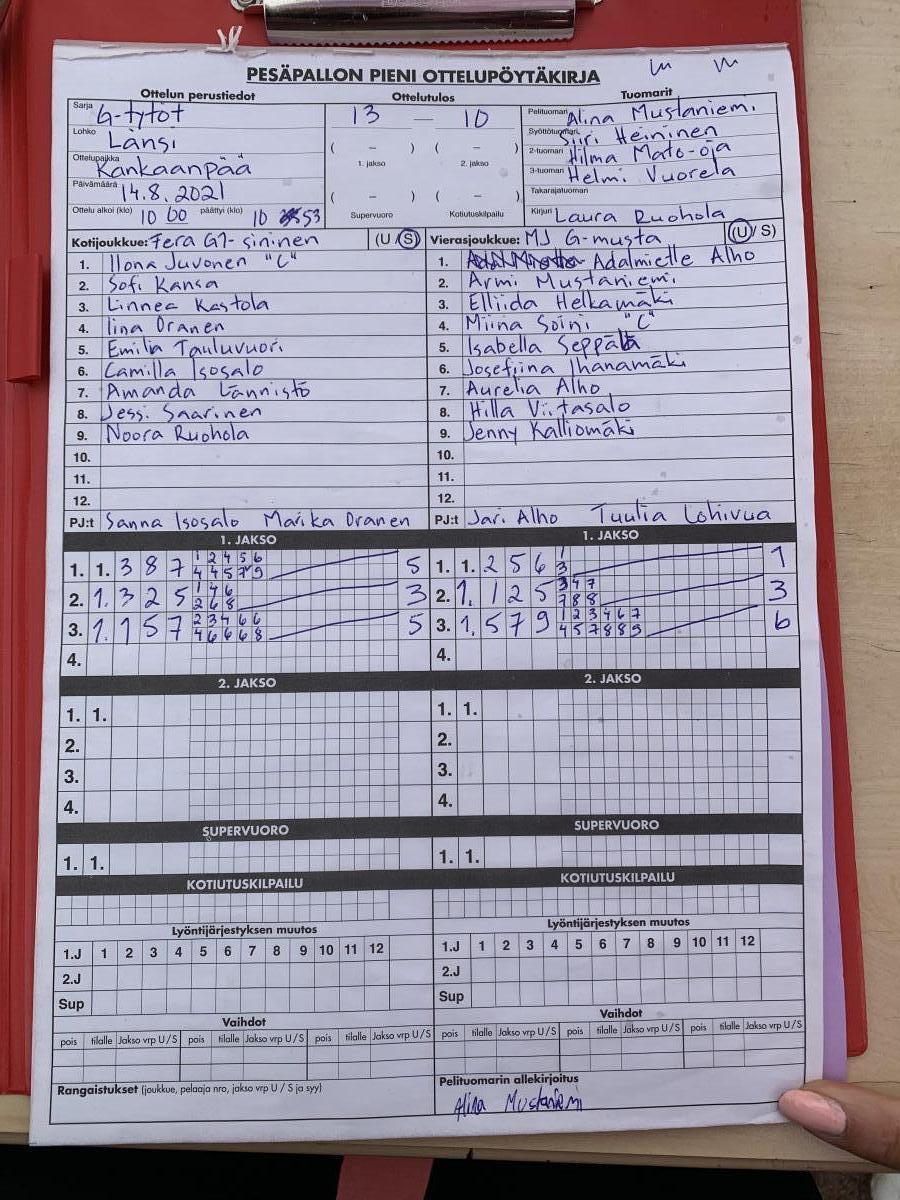 PESÄPALLON PIENI OTTELUPÖYTÄKIRJA
Ottelun perustiedot
Ottelutulos
Tuomarit
Sarja G-tytöt
Lohko Länsi
Ottelupaikka Kankaanpää
Päivämäärä 14.8.2021
Ottelu alkoi (klo) 10 00 päättyi (klo) 10 53
13 — 10
( – ) ( – )
1. jakso 2. jakso
( – ) ( – )
Supervuoro Kotiutuskilpailu
Pelituomari Alina Mustaniemi
Syöttötuomari Siiri Heininen
2-tuomari Hilma Mato-oja
3-tuomari Helmi Vuorela
Takarajatuomari
Kirjuri Laura Ruohola
Kotijoukkue: Fera G1-sininen (U/S)
1. Ilona Juvonen "C"
2. Sofi Kansa
3. Linnea Kastola
4. Iina Oranen
5. Emilia Tauluvuori
6. Camilla Isosalo
7. Amanda Lännistö
8. Jessi Saarinen
9. Noora Ruohola
10.
11.
12.
PJ:t Sanna Isosalo Marika Oranen
Vierasjoukkue: MJ G-musta (U/S)
1. Adalmielle Alho
2. Armi Mustaniemi
3. Elliida Helkamäki
4. Miina Soini "C"
5. Isabella Seppälä
6. Josefiina Ihanamäki
7. Aurelia Alho
8. Hilla Viitasalo
9. Jenny Kalliomäki
10.
11.
12.
PJ:t Jari Alho Tuulia Lohivua
1. JAKSO
1. 1. 3 8 7 1 2 4 5 6 5
4 4 5 7 9
2. 1. 3 2 5 1 4 6 3
2 6 8
3. 1. 1 5 7 2 3 4 6 6 5
4 6 6 6 8
4.
1. JAKSO
1. 1. 2 5 6 1 1
3
2. 1. 1 2 5 3 4 7 3
7 8 8
3. 1. 5 7 9 1 2 3 4 6 7 6
4 5 7 8 8 9
4.
2. JAKSO
1. 1.
2.
3.
4.
2. JAKSO
1. 1.
2.
3.
4.
SUPERVUORO
1. 1.
SUPERVUORO
1. 1.
KOTIUTUSKILPAILU
KOTIUTUSKILPAILU
Lyöntijärjestyksen muutos
1.J 1 2 3 4 5 6 7 8 9 10 11 12
2.J
Sup
Lyöntijärjestyksen muutos
1.J 1 2 3 4 5 6 7 8 9 10 11 12
2.J
Sup
Vaihdot
pois tilalle Jakso vrp U/S pois tilalle Jakso vrp U/S pois tilalle Jakso vrp U/S
Vaihdot
pois tilalle Jakso vrp U/S pois tilalle Jakso vrp U/S pois tilalle Jakso vrp U/S
Rangaistukset (joukkue, pelaaja nro, jakso vrp U / S ja syy)
Pelituomarin allekirjoitus
Alina Mustaniemi